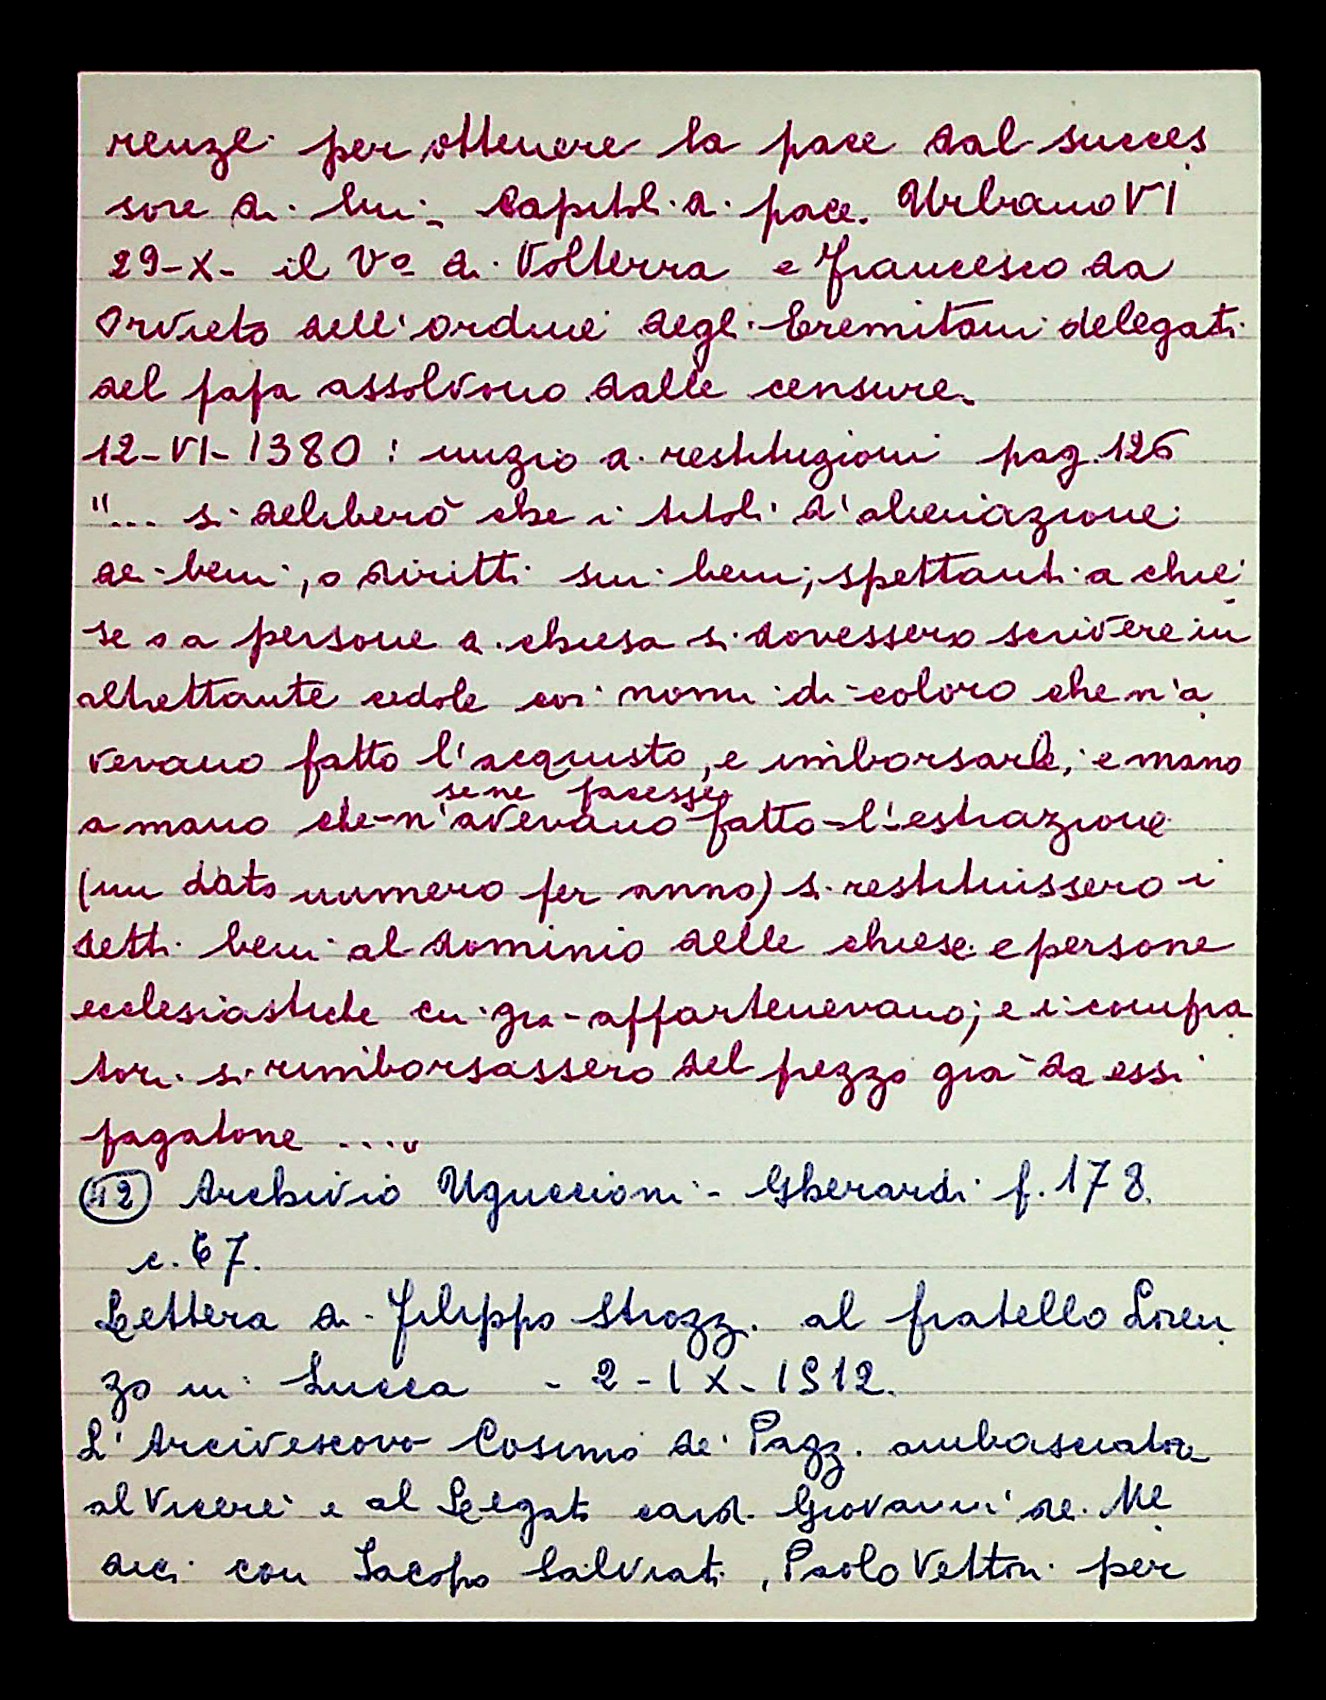 renze per ottenere la pace dal succes
sore di lui - Capitoli di pace. Urbano VI
29-X- il Vº di Volterra e Francesco da
Orvieto dell'ordine degli Eremitani delegati
del papa assolvono dalle censure.
12-VI-1380: inizio di restituzioni pag. 126
"... si deliberò che i titoli d'alienazione
de beni, o diritti sui beni, spettanti a chie
se o a persone di chiesa si dovessero scrivere in
altrettante cedole coi nomi di coloro che n'a
vevano fatto l'acquisto, e imborsarle, e mano
se ne facesse
a mano che n'avevano fatto l'estrazione
(un dato numero per anno) si restituissero i
detti beni al dominio delle chiese e persone
ecclesiastiche cui già appartenevano; e i compra
tori si rimborsassero del prezzo già da essi
pagatone ...."
(42) Archivio Uguccioni - Gherardi f. 178.
c. 67.
Lettera di Filippo Strozzi al fratello Loren
zo in Lucca - 2-IX-1512.
L'Arcivescovo Cosimo de' Pazzi ambasciatore
al Viceré e al Legato card. Giovanni de Me
dici con Iacopo Salviati, Paolo Vettori per